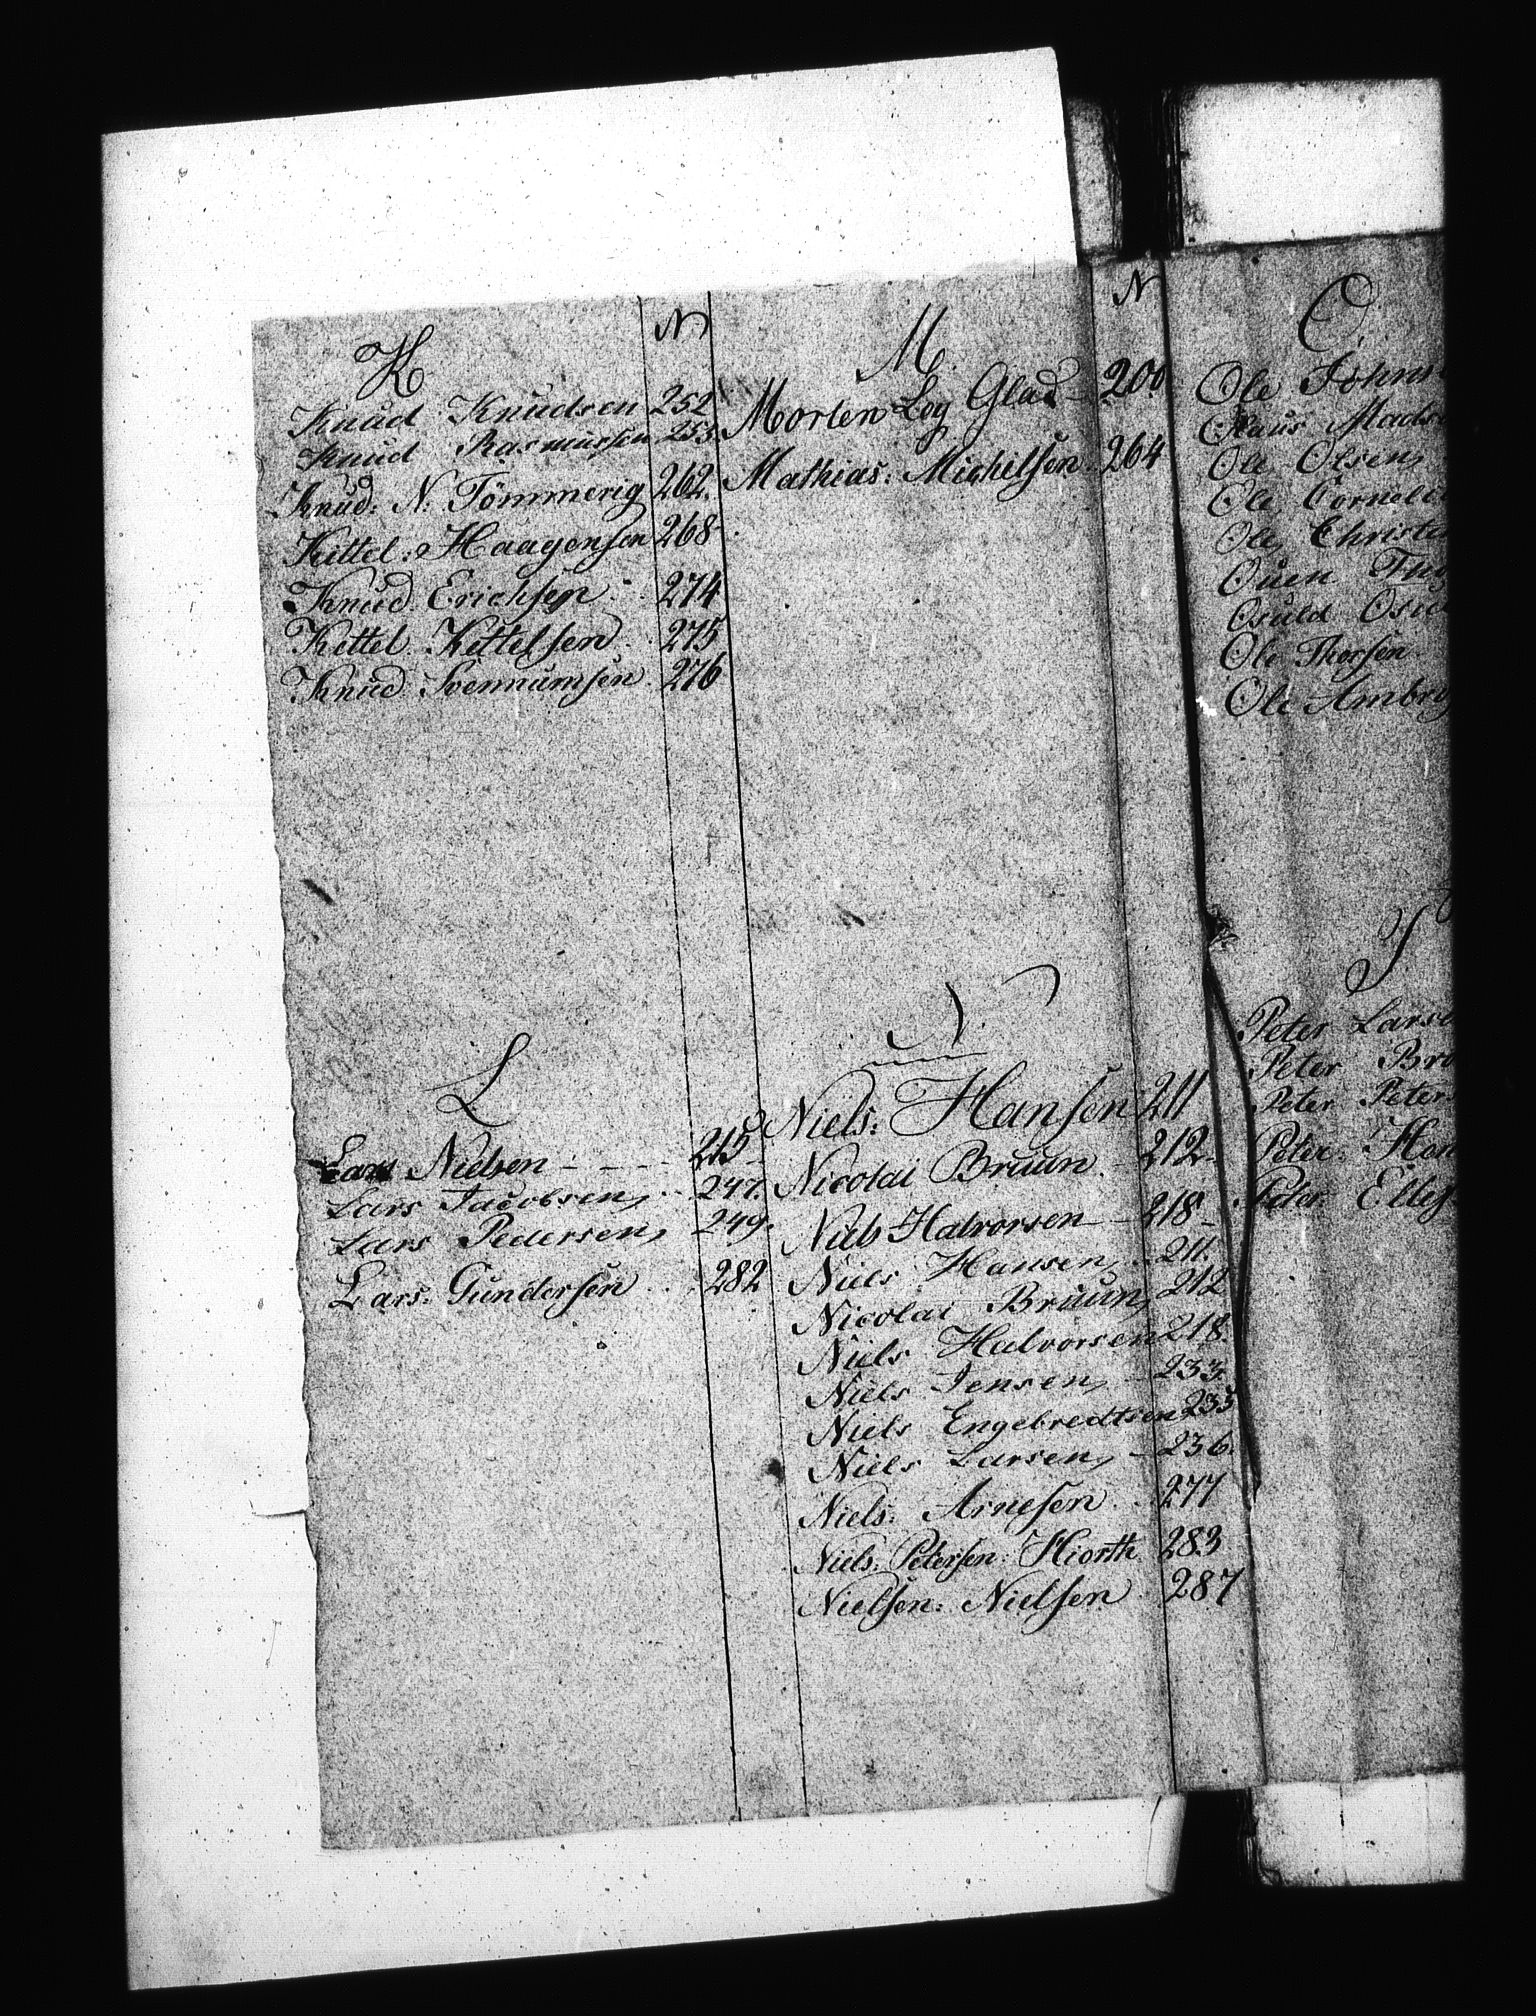 K N
Knud Knudsen 252
Knud Rasmussen 253
Knud: N: Tömmerig 262.
Kittel: Haagensen 268
Knud Erichsen 274
Kettel Kettelsen 275
Knud Svennumsen 276
L
Lars Nielsen 215
Lars Jacobsen, 247.
Lars Pedersen, 249.
Lars: Gundersen 282
M. N
Morten Log Glad 200
Mathias: Michelsen 264
N.
Niels: Hansen 211
Nicolai Bruun 212
Niels Halvorsen 218
Niels Hansen, 211.
Nicolai Bruun, 212
Niels Halvorsen 218.
Niels Jensen, 233.
Niels Engebredtsen 235
Niels Larsen, 236.
Niels: Arnesen 277
Niels: Petersen: Hiorth 283
Nielsen: Nielsen 287
O
Ole
Claus
Ole Olsen,
Ole,
Ole,
Ouen
Osuld
Ole Thorsen
Ole
Peter
Peter
Peter
Peter:
Peter